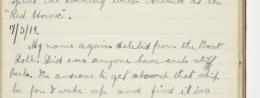 spent the evening with friends at the
"Red House".
7/3/19.
My name again deleted from the Boat
Roll! Did ever anyone have such
luck. I'm anxious to get aboard that ship
be for I wake up and find it is a